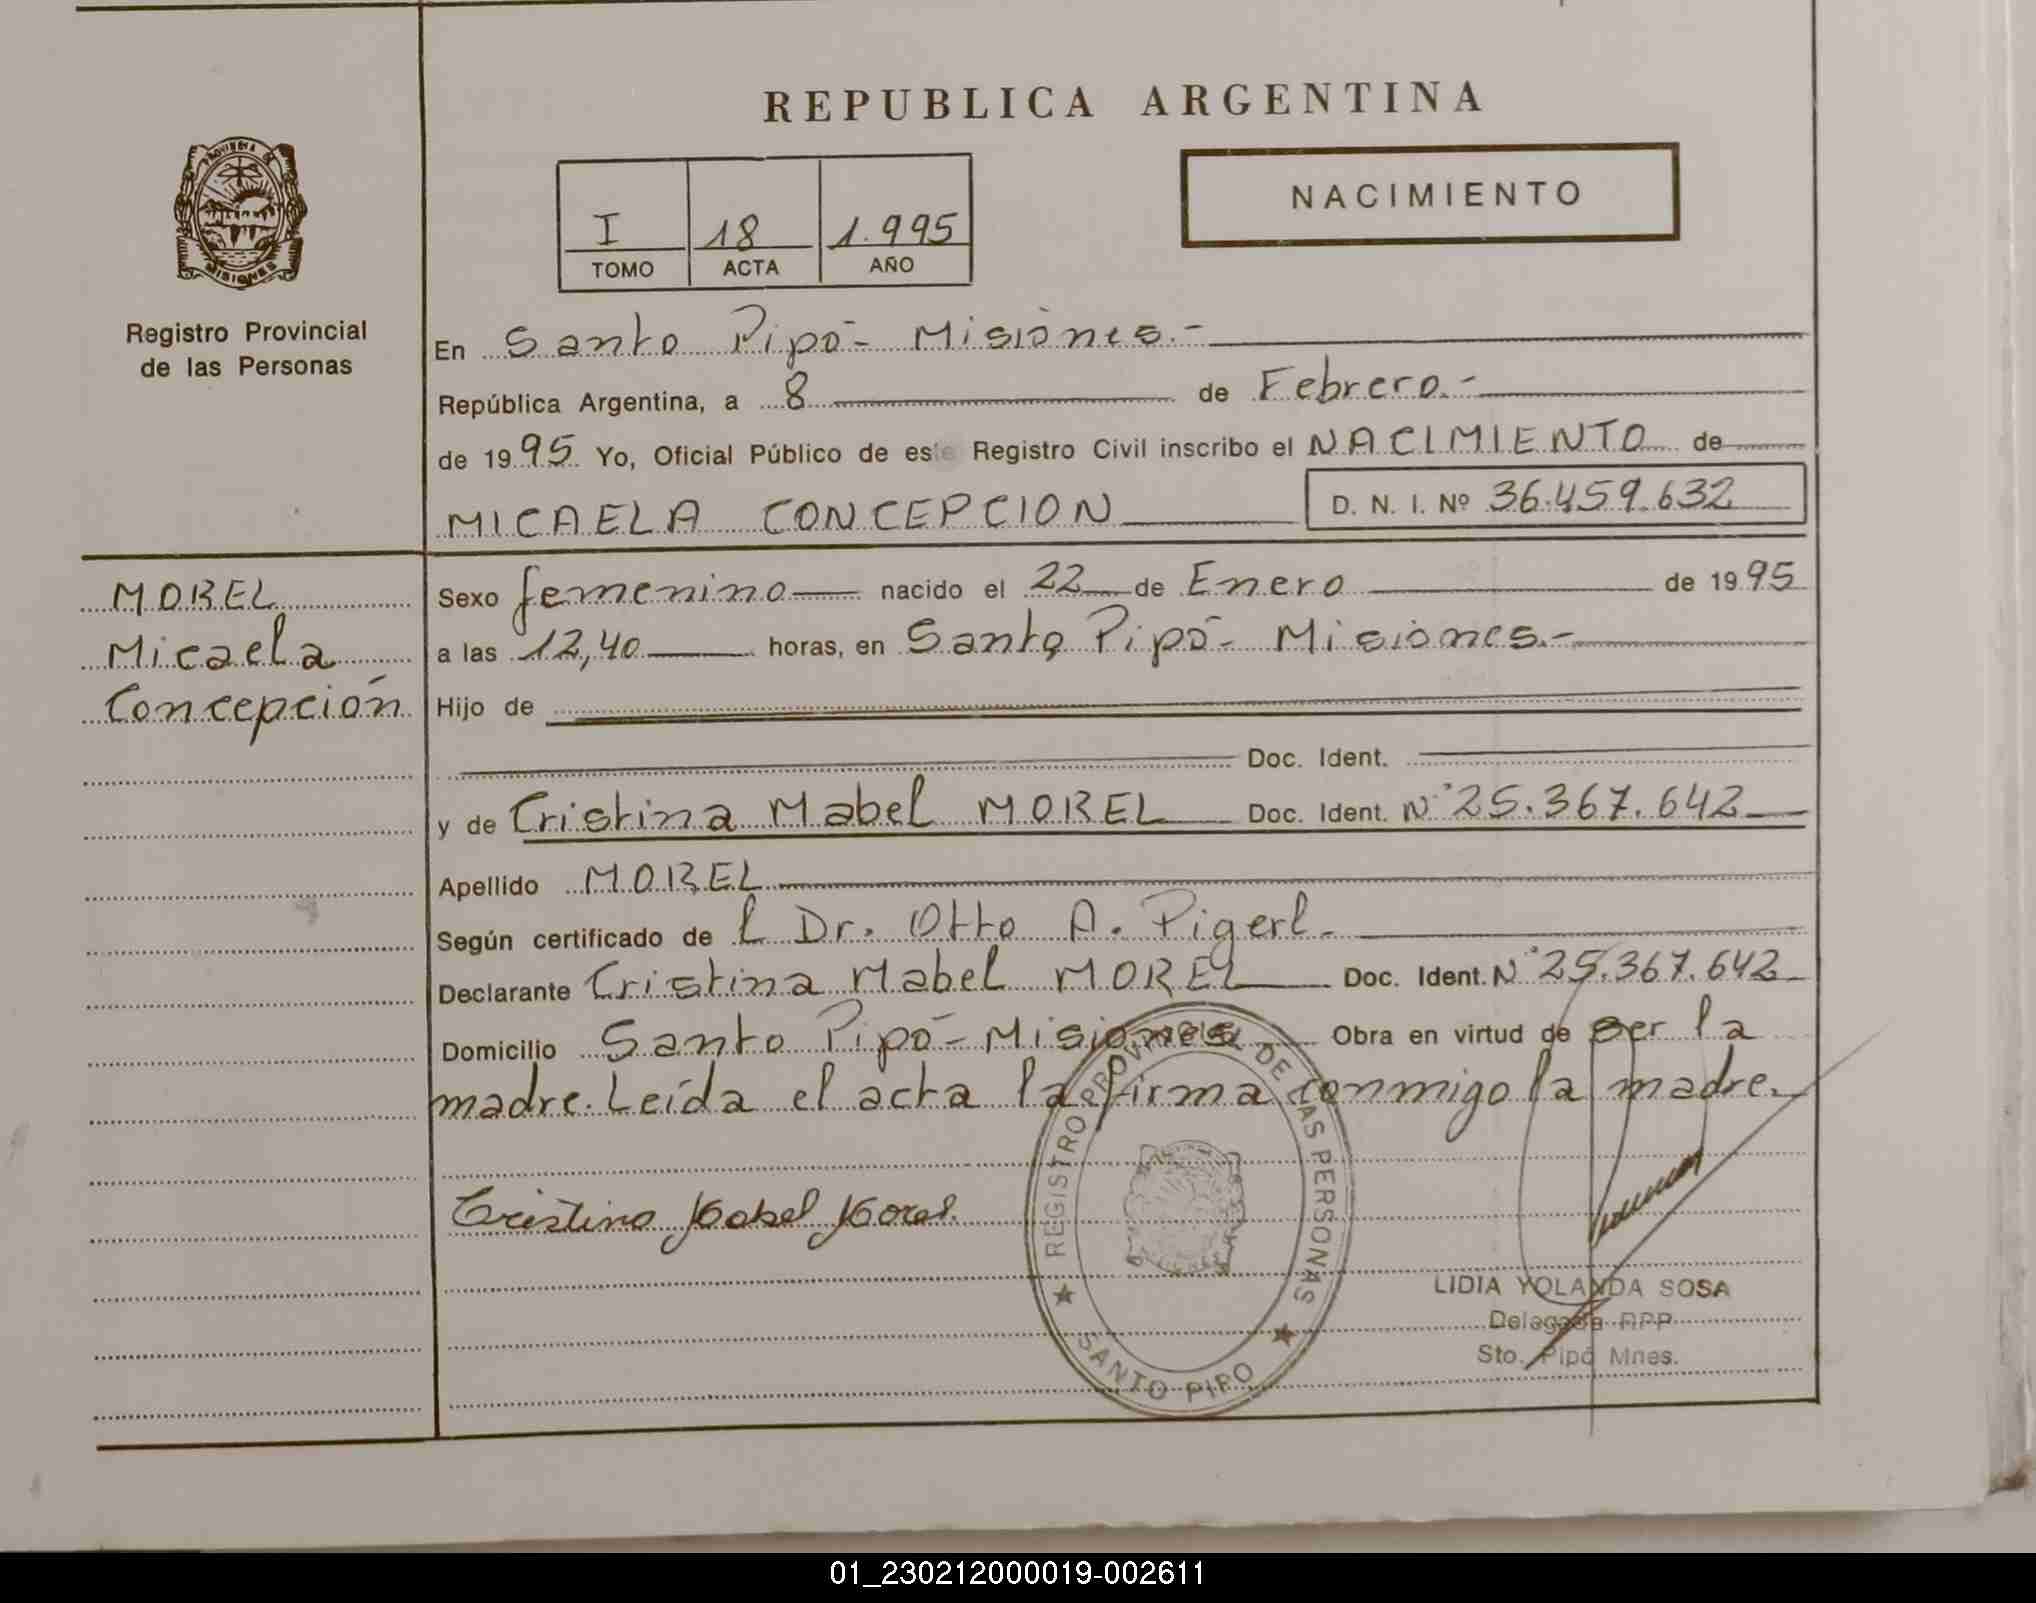 REPUBLICA ARGENTINA
PROVINCIA DE
MISIONES
Registro Provincial
de las Personas
I 18 1.995
TOMO ACTA AÑO
NACIMIENTO
En Santo Pipó - Misiones.-
República Argentina, a 8 de Febrero.-
de 1995 Yo, Oficial Público de este Registro Civil inscribo el NACIMIENTO de
MICAELA CONCEPCION D. N. I. Nº 36.459.632
MOREL
Micaela
Concepción
Sexo femenino nacido el 22 de Enero de 1995
a las 12,40 horas, en Santo Pipó - Misiones.-
Hijo de
Doc. Ident.
y de Cristina Mabel MOREL Doc. Ident. N° 25.367.642
Apellido MOREL
Según certificado de l Dr. Otto A. Pigerl.
Declarante Cristina Mabel MOREL Doc. Ident. N° 25.367.642
Domicilio Santo Pipó - Misiones Obra en virtud de ser la
madre. Leída el acta la firma conmigo la madre.
Cristina Mabel Morel.
REGISTRO PROVINCIAL DE LAS PERSONAS
SANTO PIPO
LIDIA YOLANDA SOSA
Delegada RPP
Sto. Pipó Mnes.
01_230212000019-002611